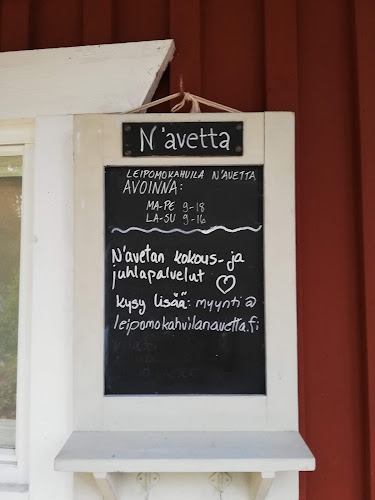 N'avetta
LEIPOMOKAHVILA N'AVETTA
AVOINNA:
MA-PE 9-18
LA-SU 9-16
N'avetan kokous- ja
juhlapalvelut
kysy lisää: myynti@
leipomokahvilanavetta.fi